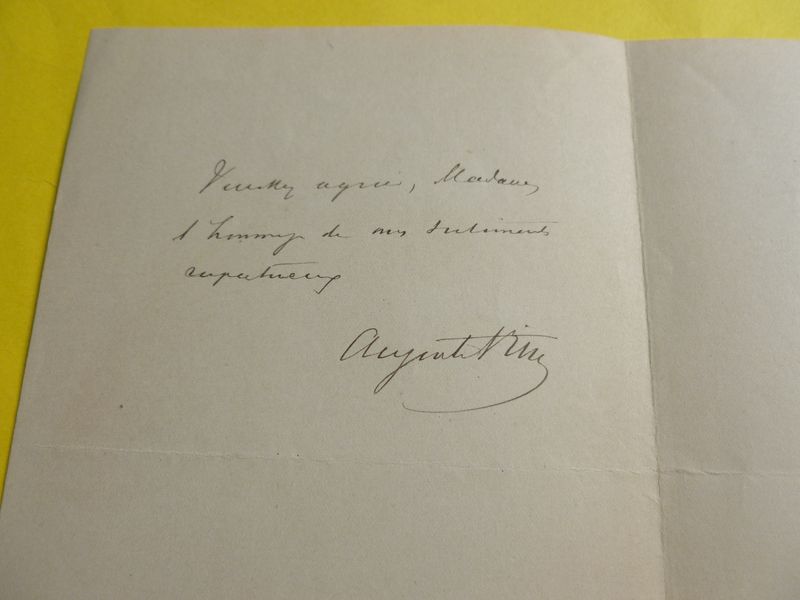 Veuillez agréer, Madame,
l'hommage de mes sentiments
respectueux
Auguste